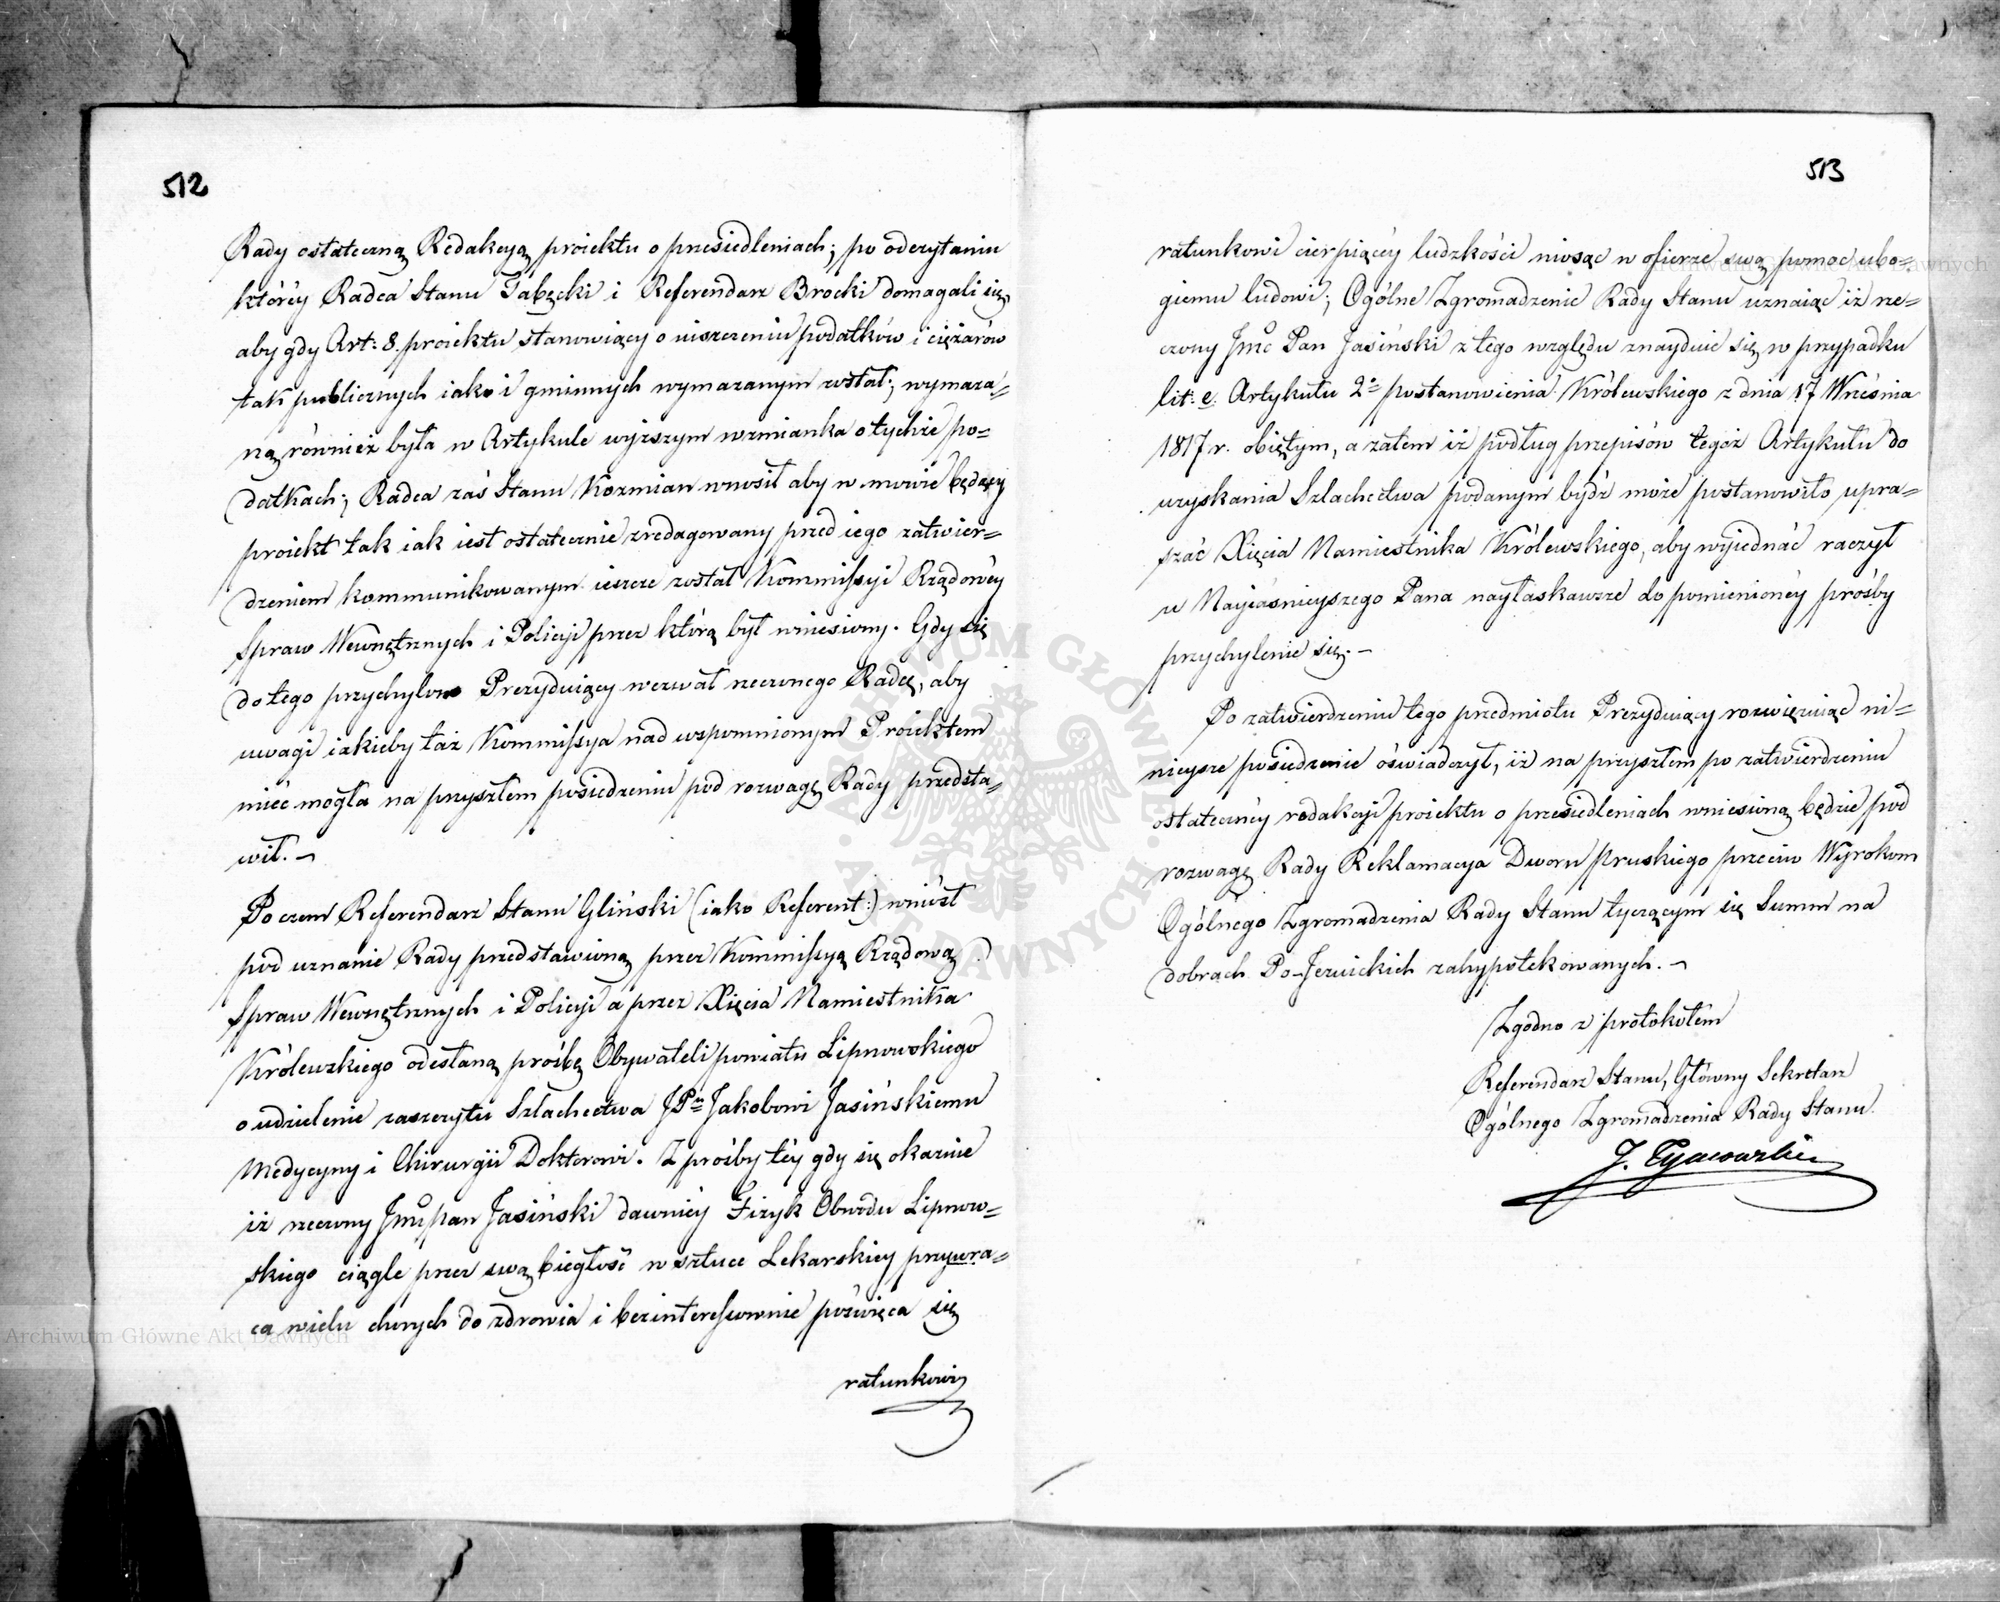 512
Rady ostateczną Redakcyą proiektu o przesiedleniach; po odczytaniu
któréy Radca Stanu Tabęcki i Referendarz Brocki domagali się,
aby gdy Art: 8. proiektu stanowiący o uiszczeniu podatków i ciężarów
tak publicznych iako i gminnych wymazanym został; wymaza=
ną również była w Artykule wyższym wzmianka o tychże po=
datkach; Radca zaś Stanu Kozmian wnosił aby w mowie będący
proiekt tak iak iest ostatecznie zredagowany przed iego zatwier=
dzeniem kommunikowanym ieszcze został Kommissyi Rządowéy
Spraw Wewnętrznych i Policyi przez którą był wniesiony. Gdy się
do tego przychylono Prezyduiący wezwał rzeczonego Radcę, aby
uwagi iakieby taż Kommissya nad wspomnionym Proiektem
mieć mogła na przyszłem posiedzeniu pod rozwagę Rady przedsta=
wił. –
Poczem Referendarz Stanu Gliński (iako Referent:) wniósł
pod uznanie Rady przedstawioną przez Kommissyą Rządową
Spraw Wewnętrznych i Policyi a przez Xięcia Namiestnika
Królewskiego odesłaną prośbę Obywateli powiatu Lipnowskiego
o udzielenie zaszczytu Szlachectwa JPu Jakobowi Jasińskiemu
Medycyny i Chirurgii Doktorowi. Z prośby téy gdy się okazuie
iż rzeczony Jmć pan Jasiński dawniéy Fizyk Obwodu Lipnow=
skiego ciągle przez swą biegłość w sztuce Lekarskiey przywra=
ca wielu chorych do zdrowia i bezinteressownie poświęca się
ratunkowi
513
ratunkowi cierpiącéy ludzkości niosąc w ofierze swą pomoc ubo=
giemu ludowi; Ogólne Zgromadzenie Rady Stanu uznaiąc iż rze=
czony Jmć Pan Jasiński z tego względu znayduie się w przypadku
lit: e. Artykułu 2o postanowienia Królewskiego z dnia 17 Wrześnía
1817 r. obiętym, a zatem iż podług przepisów tegoż Artykułu do
uzyskania Szlachectwa podanym bydź może postanowiło upra=
szać Xięcia Namiestnika Królewskiego, aby wyiednać raczył
u Nayiaśnieyszego Pana nayłaskawsze do pomienionéy prośby
przychylenie się. –
Po zatwierdzeniu tego przedmiotu Prezyduiący rozwięzuiąc ni=
nieysze posiedzenie oświadczył, iż na przyszłem po zatwierdzeniu
ostatecznéy redakcyi proiektu o przesiedleniach wniesioną będzie pod
rozwagę Rady Reklamacya Dworu Pruskiego przeciw Wyrokom
Ogólnego Zgromadzenia Rady Stanu tyczącym się Summ na
dobrach Po-Jezuickich zahypotekowanych. –
Zgodno z protokołem
Referendarz Stanu, Główny Sekretarz
Ogólnego Zgromadzenia Rady Stanu.
J. Tymowski
ARCHIWUM GŁÓWNE AKT DAWNYCH
Archiwum Główne Akt Dawnych
Archiwum Główne Akt Dawnych